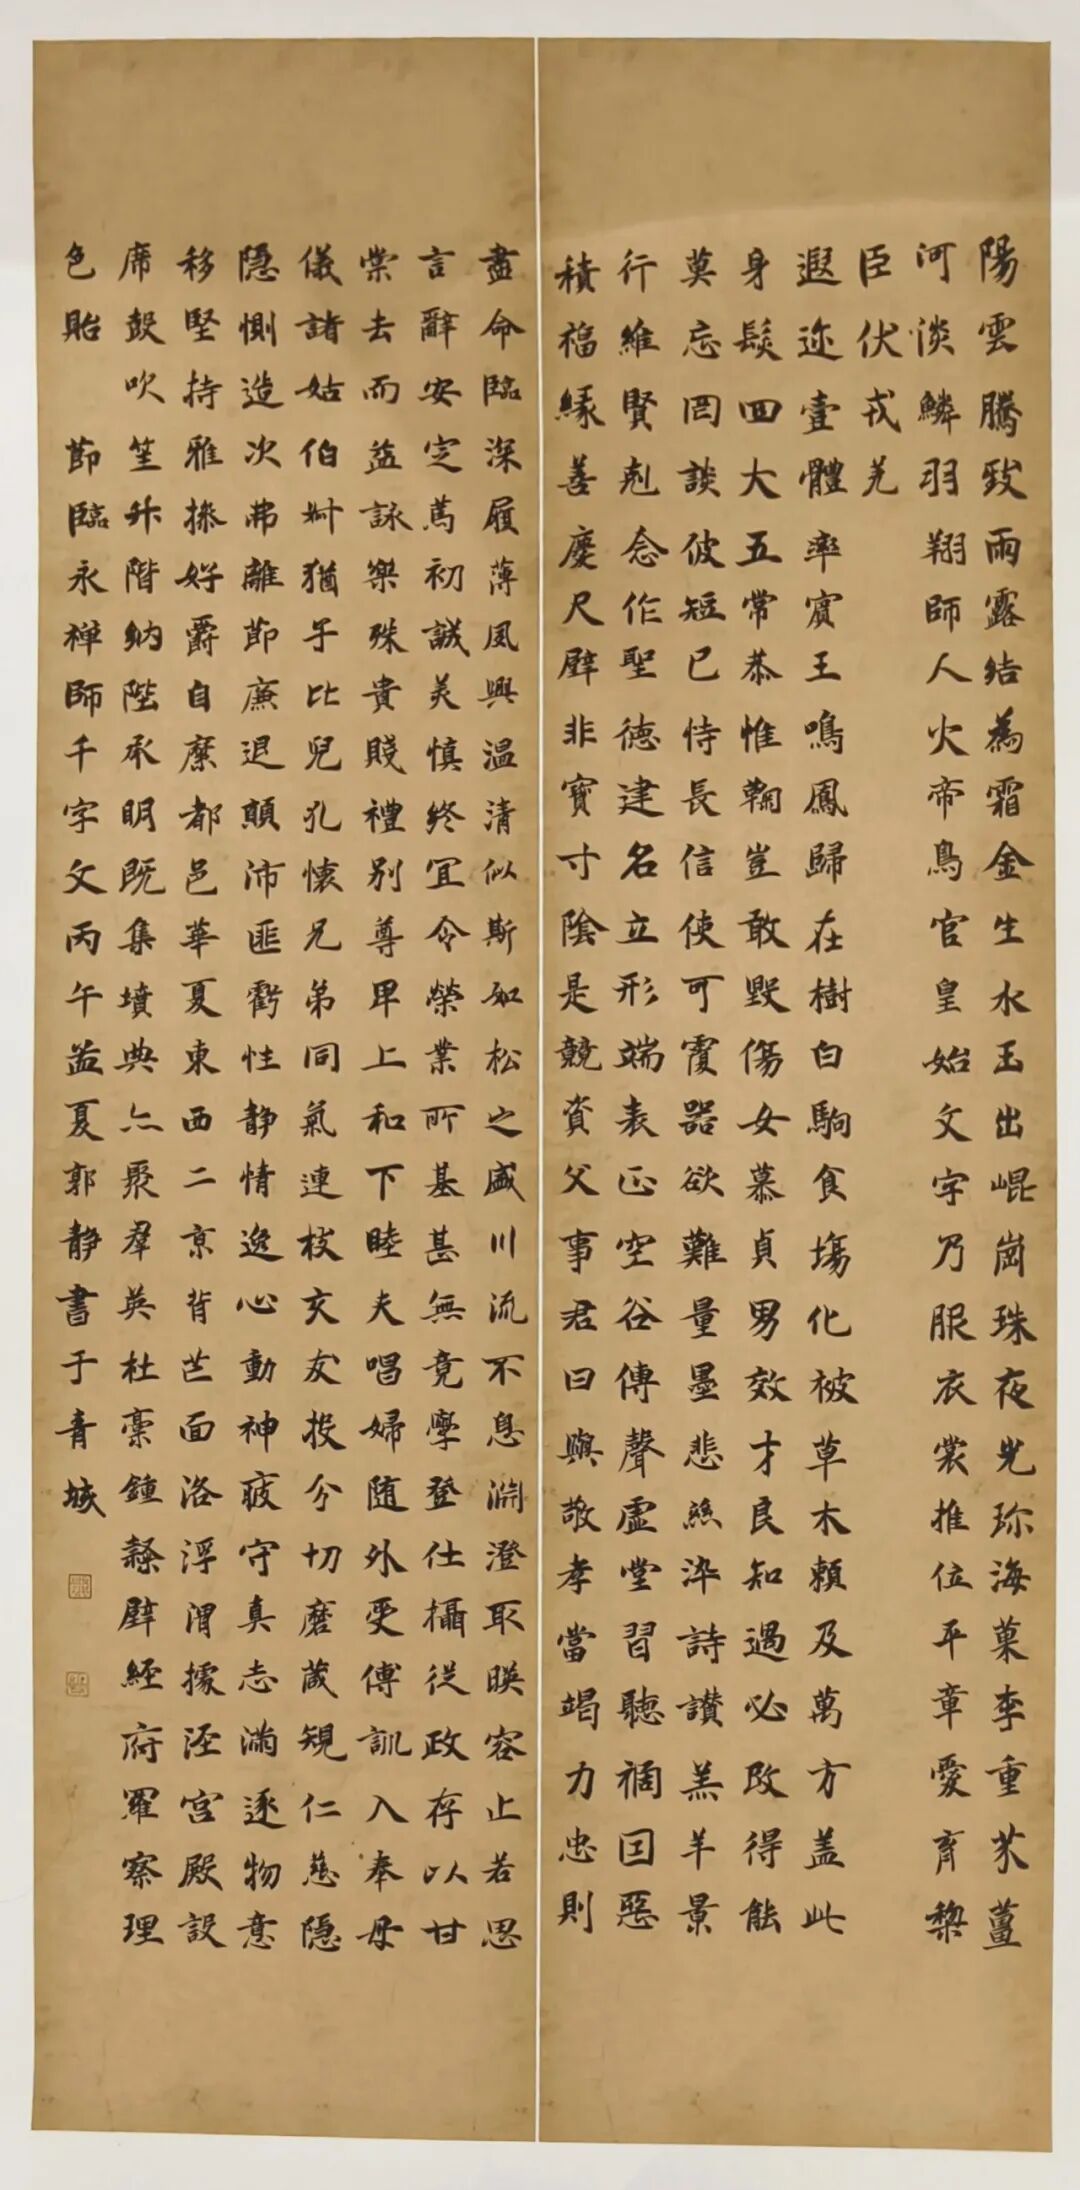 陽雲騰致雨露結為霜金生水玉出崐崗珠夜光珎海菓李重芥薑
河淡鱗羽翔師人火帝鳥官皇始文字乃服衣裳推位平章愛育黎
臣伏戎羌
遐迩壹體率賓王鳴鳳歸在樹白駒食場化被草木賴及萬方盖此
身髮四大五常恭惟鞠豈敢毀傷女慕貞男效才良知過必改得能
莫忘罔談彼短已恃長信使可覆器欲難量墨悲絲染詩讃羔羊景
行維賢剋念作聖德建名立形端表正空谷傳聲虛堂習聽禍因惡
積福緣善慶尺璧非寶寸陰是競資父事君曰與敬孝當竭力忠則
盡命臨深履薄夙興温清似斯如松之盛川流不息淵澄取暎容止若思
言辭安定篤初誠美慎終宜令榮業所基甚無竟學登仕攝從政存以甘
棠去而益詠樂殊貴賤禮別尊卑上和下睦夫唱婦随外受傅訓入奉母
儀諸姑伯叔猶子比兒孔懷兄弟同氣連枝交友投分切磨葴規仁慈隠
隠惻造次弗離節廉退顛沛匪虧性静情逸心動神疲守真志滿逐物意
移堅持雅操好爵自縻都邑華夏東西二京背芒面洛浮渭據涇宫殿設
席鼓吹笙升階納陛承明既集墳典亦聚羣英杜稾鍾隸璧經府羅察理
色貽 節臨永禅師千字文丙午孟夏郭静書于青城